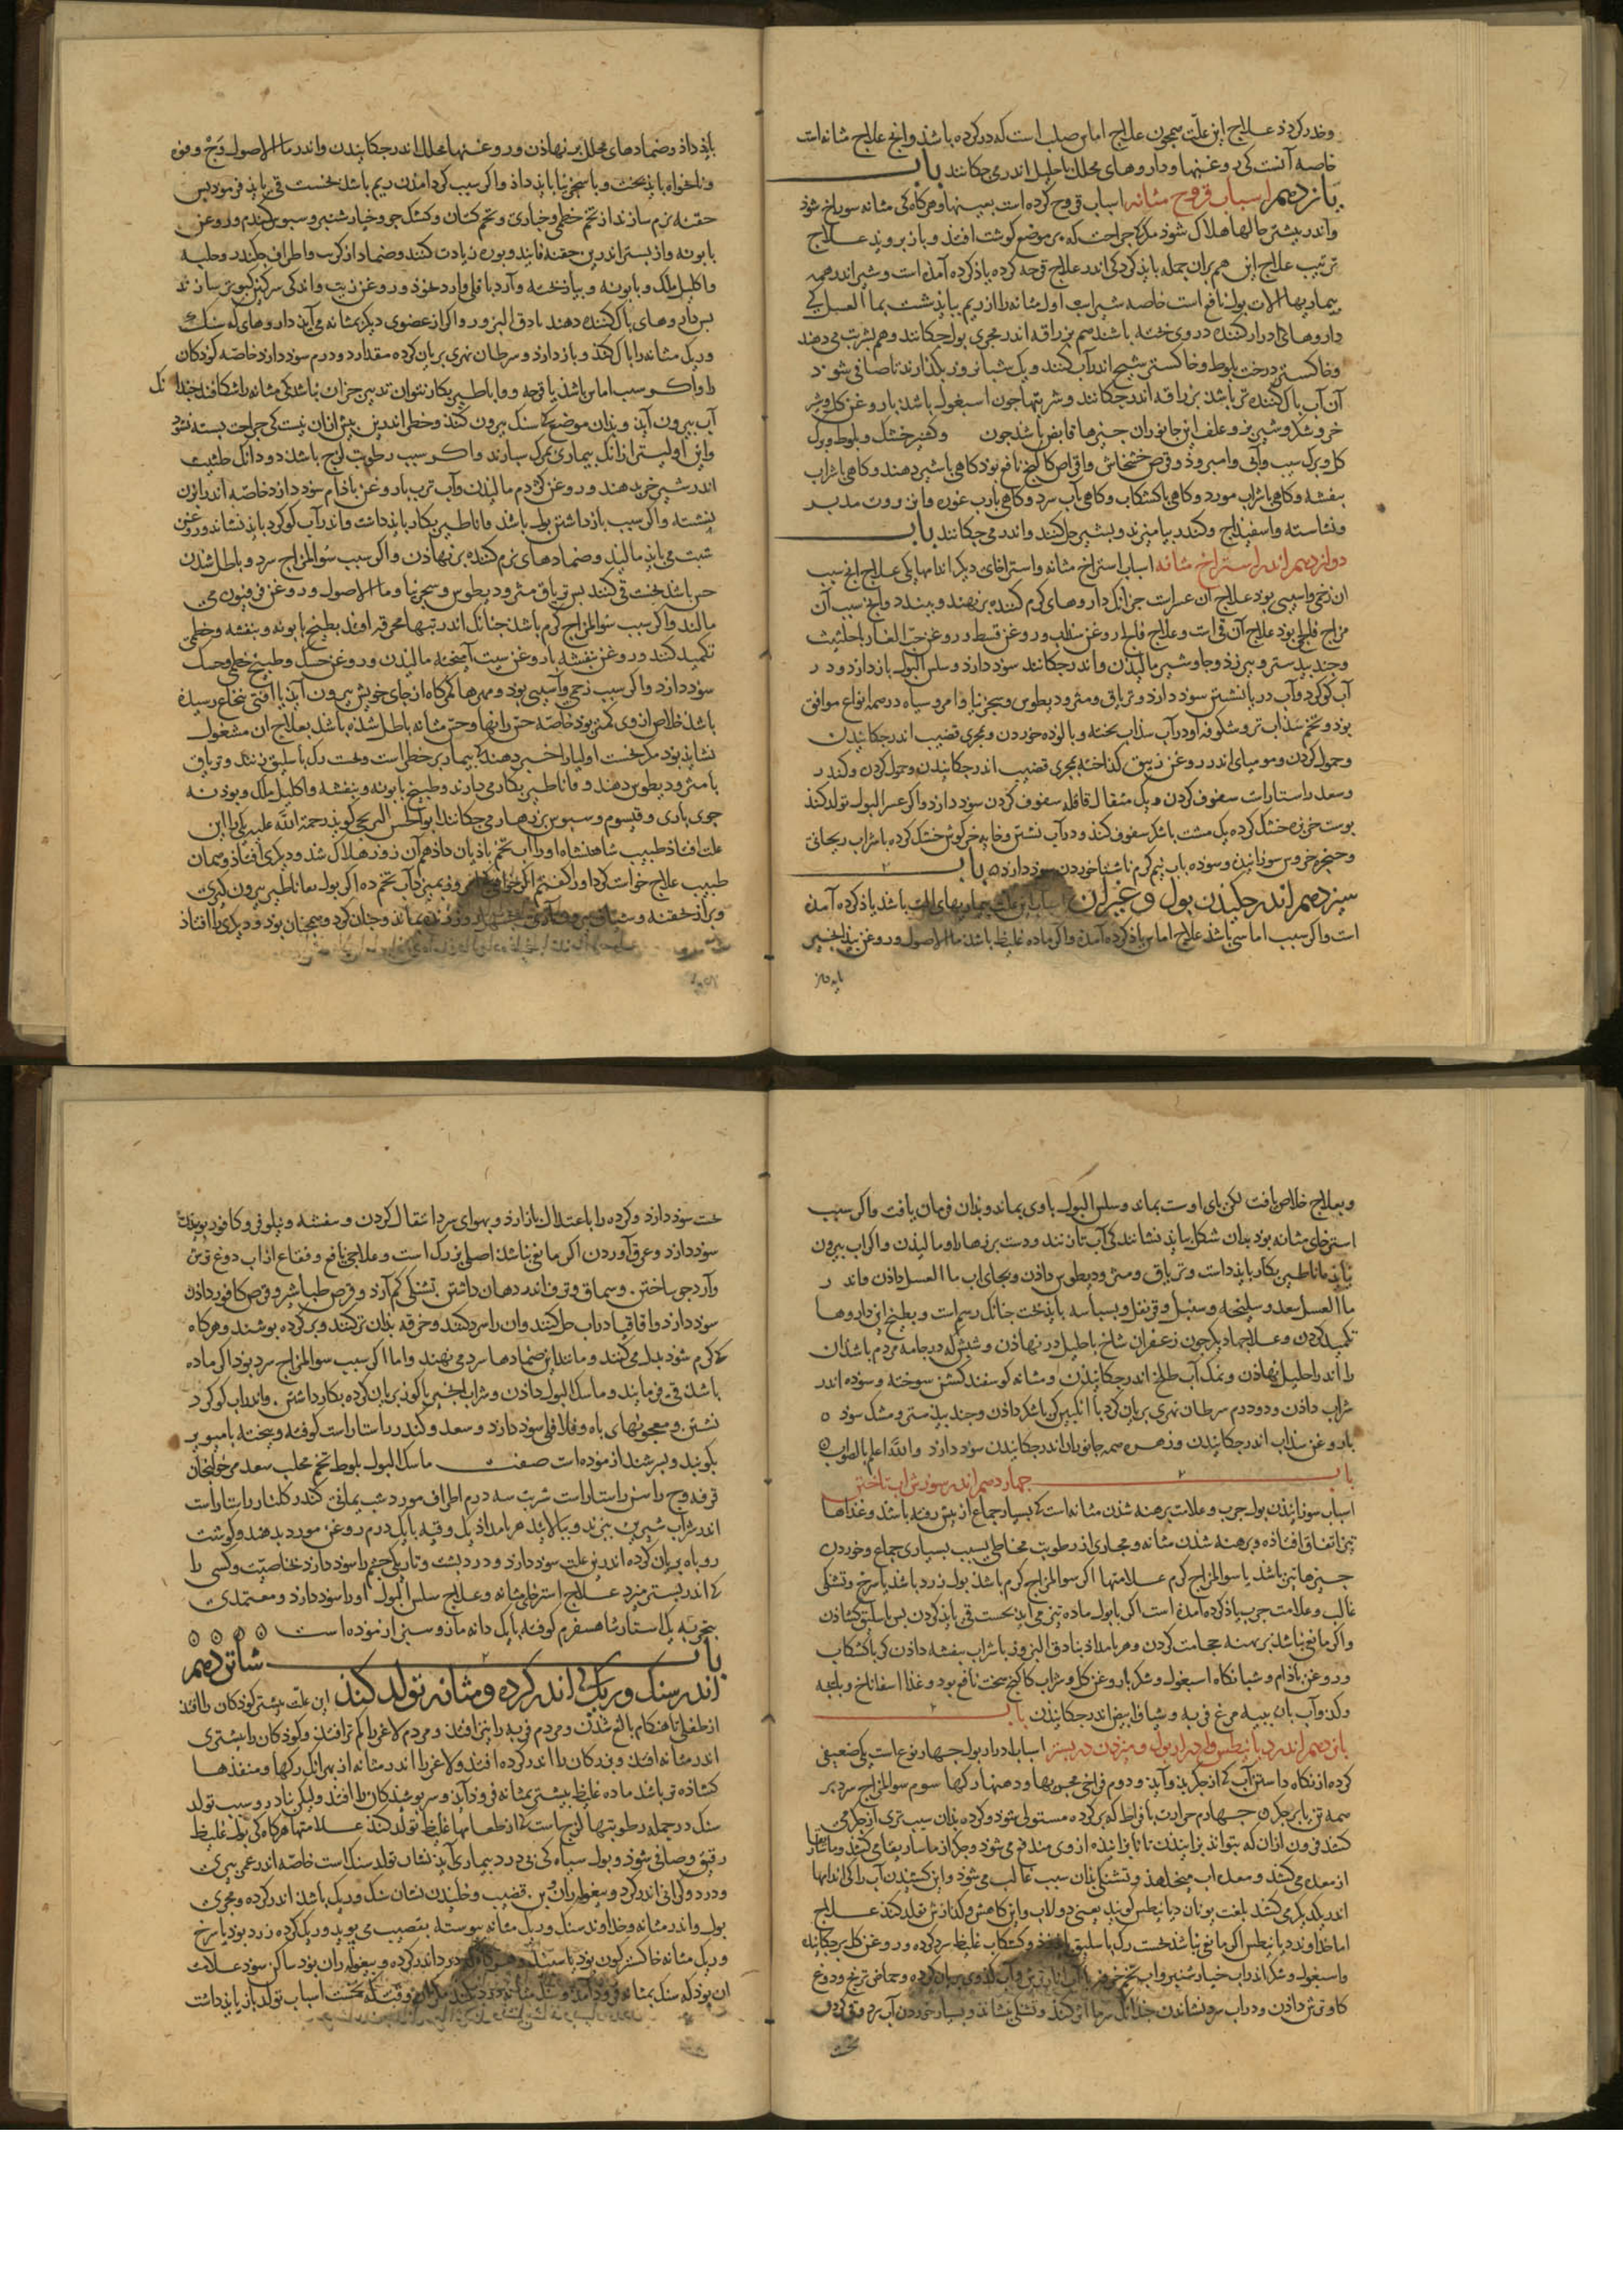 وخدر کردد علاج این علت همچون علاج اماس صلب است که در کرده باشد وانچ علاج مثانه است
خاصه آنست کی روغنها وداروهای محلل باحلیل اندر می چکانند باب
یازدهم اسباب قروح مثانه اسباب قروح کرده است بعینها وهرکاه کی مثانه سوراخ شود
واندر بیشتر حالها هلاک شود مکر جراحت که بر موضع کوشت افتد وباز بروید علاج
ترتیب علاج این هم بران جمله باید کرد کی اندر علاج قرحه کرده یاذ کرده آمده است وشیر اندر همه
بیماریها الات بول نافع است خاصه شیر اسب اول مثانه را از ریم بباید شست بماالعسل کی
داروهای ادرار کننده در وی پخته باشند هم بزراقه اندر مجری بول چکانند وهم بشربت می دهند
وخاکستر درخت بلوط وخاکستر شیح اندر آب کنند ویک شبانروز بکذارند تا صافی شود
آن آب پاک کننده تر باشد بزراقه اندر چکانند وشربتها چون اسبغول باشد با روغن کل وشیر
خر وشکر وشیر بز وعلف این جانوران چیزها قابض باشد چون وکشنیز خشک وبلوط وبرک
کل وبرک سیب وآبی وامرود وقرص خشخاش واقراص کاکنج نافع بود کاهی باشیر دهند وکاهی باشراب
بنفشه وکاهی باشراب مورد وکاهی باکشکاب وکاهی بآب سرد وکاهی بارب غوره وانزروت مدبر
ونشاسته واسفیذاج وکندر بیامیزند وبشیر حل کنند واندر می چکانند باب
دوازدهم اندر استرخاء مثانه اسباب استرخاء مثانه واسترخای دیکر اندامها یکی علاج انچ سبب
ان زخمی واسیبی بود علاج آن عسرست جزانک داروهای کرم کننده برنهند وببندند وانچ سبب آن
مزاج فلجی بود علاج آن قی است وعلاج فلج از روغن سذاب وروغن قسط وروغن حب الغار باحلتیت
وجند بیدستر وبیرزد وجاوشیر مالیدن واندر چکانند سود دارد وسلس البول باز دارد ودر
آب کوکرد وآب دریا نشستن سود دارد وتریاق ومثرودیطوس وسجزنیا وامروسیاه در همه انواع موافق
بود وتخم سذاب تر وشکوفه او در آب سذاب پخته وپالوده خوردن وبمجری قضیب اندر چکانیدن
وحمول کردن ومومیای اندر روغن زیبق کداخته بمجری قضیب اندر چکانیدن وحمول کردن وکندر
وسعد راستاراست سفوف کردن ویک مثقال قاقله سفوف کردن سود دارد واکر عسرالبول تولد کند
پوست خربزه خشک کرده یک مشت باشکر سفوف کند ودر آب نشستن وخایه خرکوش خشک کرده باشراب ریحانی
وحنجره خروس سوزانیدن وسوده بآب نیم کرم ناشتا خوردن سود دارد باب
سیزدهم اندر چکیدن بول وغیر ان اسباب این علت بیماریهای باشد یاذ کرده آمده
است واکر سبب اماسی باشد علاج اماس یاذ کرده آمده واکر ماده غلیظ باشد ماالاصول وروغن بیدانجیر
باید داد وضمادهای محلل برنهادن وروغنها محلل اندر چکانیدن واندر ماالاصول وج وفوه
ونانخواه باید پخت وباسجزنیا باید داد واکر سبب کرد امدن ریم باشد نخست قی باید فرمود پس
حقنه نرم سازند از تخم خطمی وخبازی وتخم کتان وکشک جو وخیارشنبر وسبوس کندم وروغن
بابونه واز بستر اندرین حقنه فانید وبوره زیادت کنند وضماد از کرنب واطراف چکندر وحلبه
واکلیل ملک وبابونه وپیاز پخته وآرد باقلی وآرد نخود وروغن زیت واندکی سرکین کبوتر سازند
پس داروهای پاک کننده دهند بنادق البزور واکر از عضوی دیکر بمثانه می آید داروهای که سنک
وریک مثانه را پاک کند وباز دارد وسرطان نهری بریان کرده مقدار دو درم سود دارد خاصه کودکان
را واکر سبب اماس باشد یا قرحه وقاثاطیر بکار نتوان تدبیر جزان نباشد کی مثانه را شکافند چندانک
آب بیرون آید وبدان موضع کی سنک بیرون کنند وخطر اندرین بیش ازان نیست کی جراحت بسته نشود
واین اولیتر ازانک بیماری بمرک سپارند واکر سبب رطوبت لزج باشد دو دانک حلتیت
اندر شیر خر بدهند وروغن کژدم مالیدن وآب ترب باروغن بادام سود دارد خاصه اندر ابزن
بنشسته واکر سبب بازداشتن بول باشد قاثاطیر بکار باید داشت واندر آب کوکرد باید نشاند وروغن
شبت می باید مالید وضمادهای نرم کننده برنهادن واکر سبب سوالمزاج سرد وباطل شدن
حس باشد نخست قی کنند پس تریاق ومثرودیطوس وسجزنیا وماالاصول وروغن فرفیون می
مالند واکر سبب سوالمزاج کرم باشد چنانک اندر تبهاء محرقه افتد بطبیخ بابونه وبنفشه وخطمی
تکمید کنند وروغن بنفشه باروغن شبت آمیخته مالیدن وروغن خسک وطبیخ خطمی وخسک
سود دارد واکر سبب زخمی وآسیبی بود ومهرها کمرکاه از جای خویش بیرون آید یا افتی بنخاع رسیده
باشد خلاص ازوی کمتر بود خاصه حس رانها وحس مثانه باطل شده باشد بعلاج آن مشغول
نشاید بود مکر نخست اولیا را خبر دهند کی بیمار بر خطر است ونخست رک باسلیق زنند وتریاق
یا مثرودیطوس دهند وقاثاطیر بکار می دارند وطبیخ بابونه وبنفشه واکلیل ملک وبودنه
جوی باری وقیسوم وسبوس بزهار می چکانند ابوالحسن الترنجی کوید رحمة الله علیه یکی را این
علت افتاد طبیب شاهنشاه او را آب تخم بادیان داد هم آن روز هلاک شد ودیکری افتاد وهمان
طبیب علاج خواست کرد اورا کفتم اکر خواهی امروز بمیرد آب تخم ده اکر بول بقاثاطیر بیرون کیری
وبراز بحقنه وشیاف بیرون آری بماند وچنان کرد وهمچنان بود ودیکری را افتاد
وبعلاج خلاص یافت لکن پای او سست بماند وسلس البول باوی بماند وبدان فرمان یافت واکر سبب
استرخای مثانه بود بدان شکل بباید نشانند کی آب تازنند ودست بر زهار او مالیدن واکر اب بیرون
نیاید قاثاطیر بکار باید داشت وتریاق ومثرودیطوس دادن وبجای اب ماالعسل دادن واندر
ماالعسل سعد وسلیخه وسنبل وقرنفل وبسباسه باید پخت چنانک رسم است وبطبیخ این داروها
تکمید کردن وعلاجها دیکر چون زعفران شاخ باحلیل در نهادن وشپش که در جامه مردم باشد آن
را اندر احلیل نهادن ونمک آب طلخ اندر چکانیدن ومثانه کوسفند کشن سوخته وسوده اندر
شراب دادن ودودرم سرطان نهری بریان کرد با انکبین کی باشکر دادن وجند بیدستر ومشک سود
باروغن سذاب اندر چکانیدن وزهره همه جانوران اندر چکانیدن سود دارد والله اعلم بالصواب
باب چهاردهم اندر سوزش اب تاختن
اسباب سوزانیدن بول جرب وعلات برهنه شدن مثانه است کی بسیار جماع از پس رفته باشد وغذاها
تیز اتفاق افتاده وبرهنه شدن مثانه ومجاری از رطوبت مخاطی بسبب بسیاری جماع وخوردن
چیزها تیز باشد یا سوالمزاج کرم علامتها اکر سوالمزاج کرم باشد بول زرد باشد یا سرخ وتشنکی
غالب وعلامت جرب یاذ کرده آمده است اکر بابول ماده تیز می آید نخست قی باید کردن پس باسلیق کشادن
واکر مانعی نباشد بر پهنه حجامت کردن وهر بامداد بنادق البزور باشراب بنفشه دادن کی باکشکاب
وروغن بادام وشبانکاه اسبغول وشکر باروغن کل وشراب کاکنج سخت نافع بود وغذا اسفاناخ وبلبجه
وکدو آب بان بپیه مرغ فربه وشیاف ابیض اندر چکانیدن باب
پانزدهم اندر دیانیطس وادرار بول ومیزیدن در بستر اسباب ادرار بول چهار نوع است یکی ضعیفی
کرده از نکاه داشتن آب کی از جکر بدو آید ودوم فراخی مجریها ودهنهاء رکها سوم سوالمزاج سرد بر
همه تن یا بر جکر چهارم حرارت بافراط که بر کرده مستولی شود وکرده بدان سبب تری از جکر می
کشد فزون ازان که بتواند برایندن تا نابرانیده ازوی مندفع می شود وجکر از ماساریقا می کشد وماساریقا
از معده می کشد ومعده اب میخواهد وتشنکی بدان سبب غالب می شود واین کشیدن آب را کی اندامها
اندر یکدیکر می کشند بلغت یونان دیانیطس کویند یعنی دولاب واین کاهش وکدازش تولد کند علاج
اما خداوند دیانیطس اکر مانعی نباشد نخست رک باسلیق زنند وکشکاب غلیظ سرد کرده وروغن کل بر چکانیده
واسبغول وشکر اندر اب خیارشنبر واب تخم خرفه یا آب انار ترش وآب کدوی بریان کرده وحماض ترنج ودوغ
کاو ترش دادن ودر اب سرد نشاندن چندانک سرما اثر کند وتشنکی بنشاند وبسیار خوردن آب سرد وقی کردن
سخت
سخت سود دارد وکرده را باعتدال باز ارد وبهوای سرد انتقال کردن وبنفشه ونیلوفر وکافور بوییدن
سود دارد وعرق آوردن اکر مانعی نباشد اصلی بزرک است وعلاجی نافع وفقاع از اب دوغ ترش
وآرد جو ساختن وسماق وترف اندر دهان داشتن تشنکی کم آرد وقرص طباشیر وقرص کافور دادن
سود دارد واقاقیا در اب حل کنند وان را سرد کنند وخرقه بدان تر کنند وبر کرده بپوشند وهرکاه
کی کرم شود بدل می کنند ومانند این ضمادها سرد می نهند واما اکر سبب سوالمزاج سرد بود اکر ماده
باشد قی فرمایند وماسک البول دادن وشراب انجیر یا کوز بریان کرده بکار داشتن واندر اب کوکرد
نشستن ومعجونهای باه وفلافلی سود دارد وسعد وکندر راستاراست کوفته وبیخته بامیویز
بکوبند وبسرشند ازموده است صفت ماسک البول بلوط تخم محلب سعد مر خولنجان
قرفه وج راسن راستاراست شربت سه درم اطراف مورد شب یمانی کندر کلنار راستاراست
اندر شراب شیرین بپزند وبپالایند هر بامداد یک وقیه بایک درم روغن مورد بدهند وکوشت
روباه بریان کرده اندرین علت سود دارد ودرد پشت وتاریکی چشم را سود دارد بخاصیت وکسی را
کی اندر بستر میزد علاج استرخاء مثانه وعلاج سلس البول اورا سود دارد ومعتمدی
بتجربه یک استار شاهسفرم کوفته بایک دانه مازو سبز ازموده است
باب شانزدهم
اندر سنک وریک کی اندر کرده ومثانه تولد کند این علت بیشتر کودکان را افتد
از طفلی تا هنکام بالغ شدن ومردم فربه را نیز افتد ومردم لاغر را کم تر افتد وکودکان را بیشتری
اندر مثانه افتد وبزرکان را اندر کرده افتد ولاغر را اندر مثانه از بهر آنک رکها ومنفذها
کشاده تر باشد ماده غلیظ بیشتر بمثانه فرود آید وسرپوشیدکان را افتد ولیکن نادر وسبب تولد
سنک در جمله رطوبتها لزج است کی از طعامها غلیظ تولد کند علامتها هرکاه کی بول غلیظ
رقیق وصافی شود وبول سیاه کی بی درد بیماری آید نشان تولد سنک است خاصه اندر عمر پیری
ودرد وکرانی اندر کرده وبیغوله ران وبن قضیب وخلیدن نشان سنک وریک باشد اندر کرده ومجری
بول واندر مثانه وخداوند سنک وریک مثانه پیوسته بقضیب می بوید وریک کرده زرد بود یا سرخ
وریک مثانه خاکسترکون بود یا سپید وهرکاه کی درد اندر کرده وبیغوله ران بود ساکن شود علامت
ان بود که سنک بمثانه فرود آمد وسنک مثانه درد نکند مکر ان وقت که نخست اسباب تولد باز باید داشت